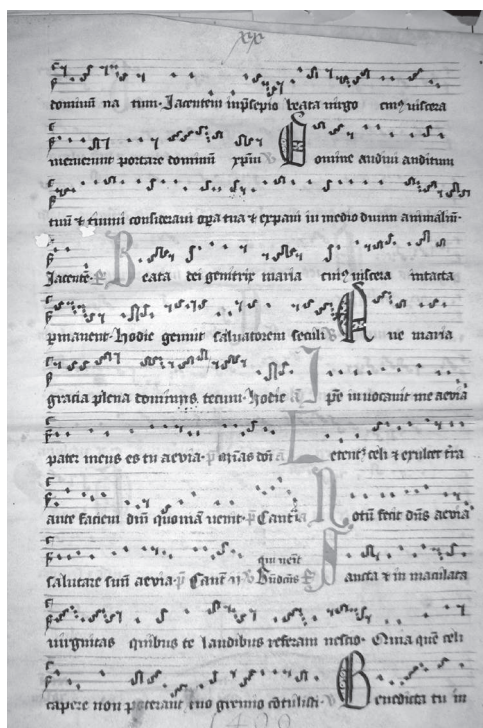 xxx
dominū na tum. Jacentem in p̄sepio beata virgo cuiꝰ viscera
meruerunt portare dominū xp̄m ℣ Domine audivi auditum
tuū ⁊ timui consideravi opa tua ⁊ expavi in medio duum animaliū.
Jacentē. Beata dei genitrix maria cuiꝰ viscera intacta
pmanent. Hodie genuit salvatorem seculi ℣ Ave maria
gracia plena dominus tecum. Hodie a Ip̄e invocavit me aevia
pater meus es tu aevia. p̄ a Letentᷣ celi ⁊ exultet t̄ra
ante faciem dn̄i quoniā venit. p̄ Cant̄ a Notū fecit dn̄s aevia
qui venit
salutare suū aevia. p̄ Cant̄ ℣ Bn̄dictus Sancta ⁊ in maculata
virginitas quibus te laudibus referam nescio. Quia quē celi
capere non poterant tuo gremio cōtulisti. ℣ Benedicta tu in
1400